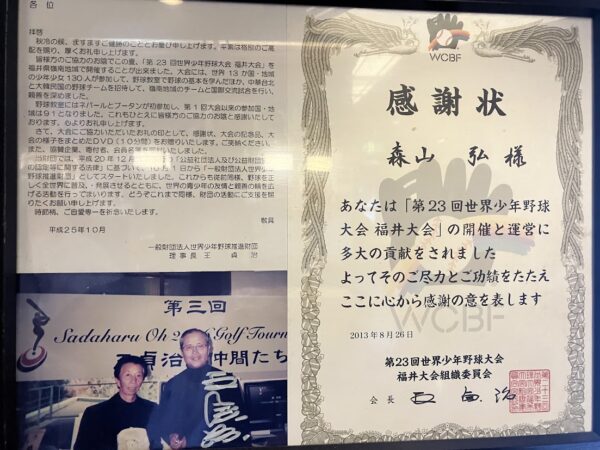 各位
拝啓
秋冷の候、ますますご健勝のこととお慶び申し上げます。平素は格別のご高
配を賜り、厚くお礼申し上げます。
皆様方のご協力のお陰でこの夏、「第23回世界少年野球大会 福井大会」を
福井県嶺南地域で開催することが出来ました。大会には、世界13か国・地域
の少年少女130人が参加して、野球教室で野球の基本を学んだほか、中華台北
と大韓民国の野球チームを招待して、嶺南地域のチームと国際交流試合を行い、
親善を深めました。
野球教室にはネパールとブータンが初参加し、第1回大会以来の参加国・地
域は91となりました。これもひとえに皆様方のご協力のお陰と感謝いたして
おります。心よりお礼申し上げます。
さて、大会にご協力いただいたお礼の印として、感謝状、大会の記念品、大
会の様子をまとめたDVD(10分間)をお贈りいたします。ご笑納ください。
また、協賛企業、寄付者、会員名簿
当財団では、平成20年12月 「公益社団法人及び公益財団
の認定等に関する法律」に基づいて、 1日から「一般財団法人世界少年
野球推進財団」としてスタートいたしました。これからも従前同様、野球を正
しく全世界に普及、発展させるとともに、世界の青少年の友情と親善の輪を広
げる活動を行ってまいります。どうぞこれまで同様、財団の活動にご支援を賜
りたくお願い申し上げます。
時節柄、ご自愛専一を祈念いたします。
敬具
平成25年10月
一般財団法人世界少年野球推進財団
理事長 王 貞治
第三回
Sadaharu Oh Golf Tourn
貞治 仲間たち
WCBF
感謝状
森山 弘 様
あなたは「第23回世界少年野球
大会 福井大会」の開催と運営に
多大の貢献をされました
よってそのご尽力とご功績をたたえ
ここに心から感謝の意を表します
WCBF
2013年8月26日
第23回世界少年野球大会
福井大会組織委員会
会長 王 貞治